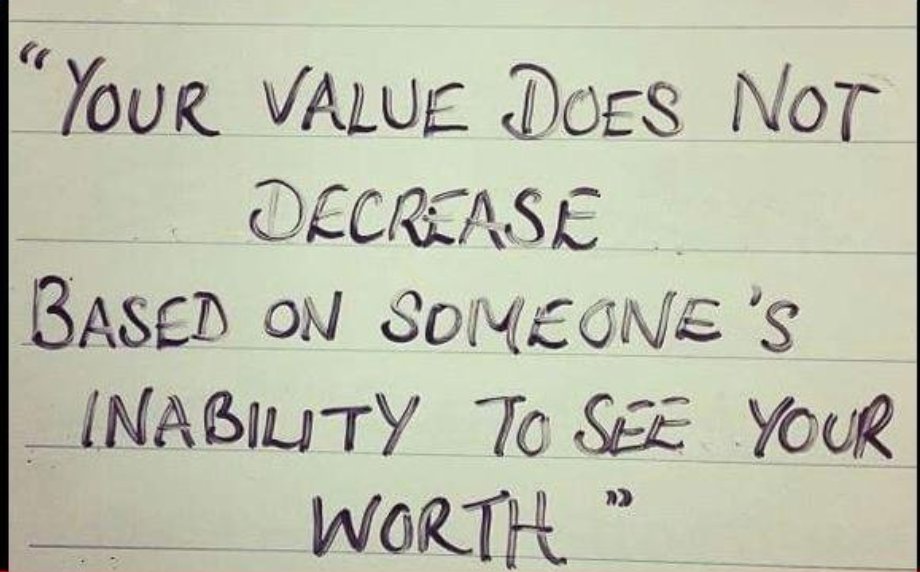 “YOUR VALUE DOES NOT
DECREASE
BASED ON SOMEONE'S
INABILITY TO SEE YOUR
WORTH”